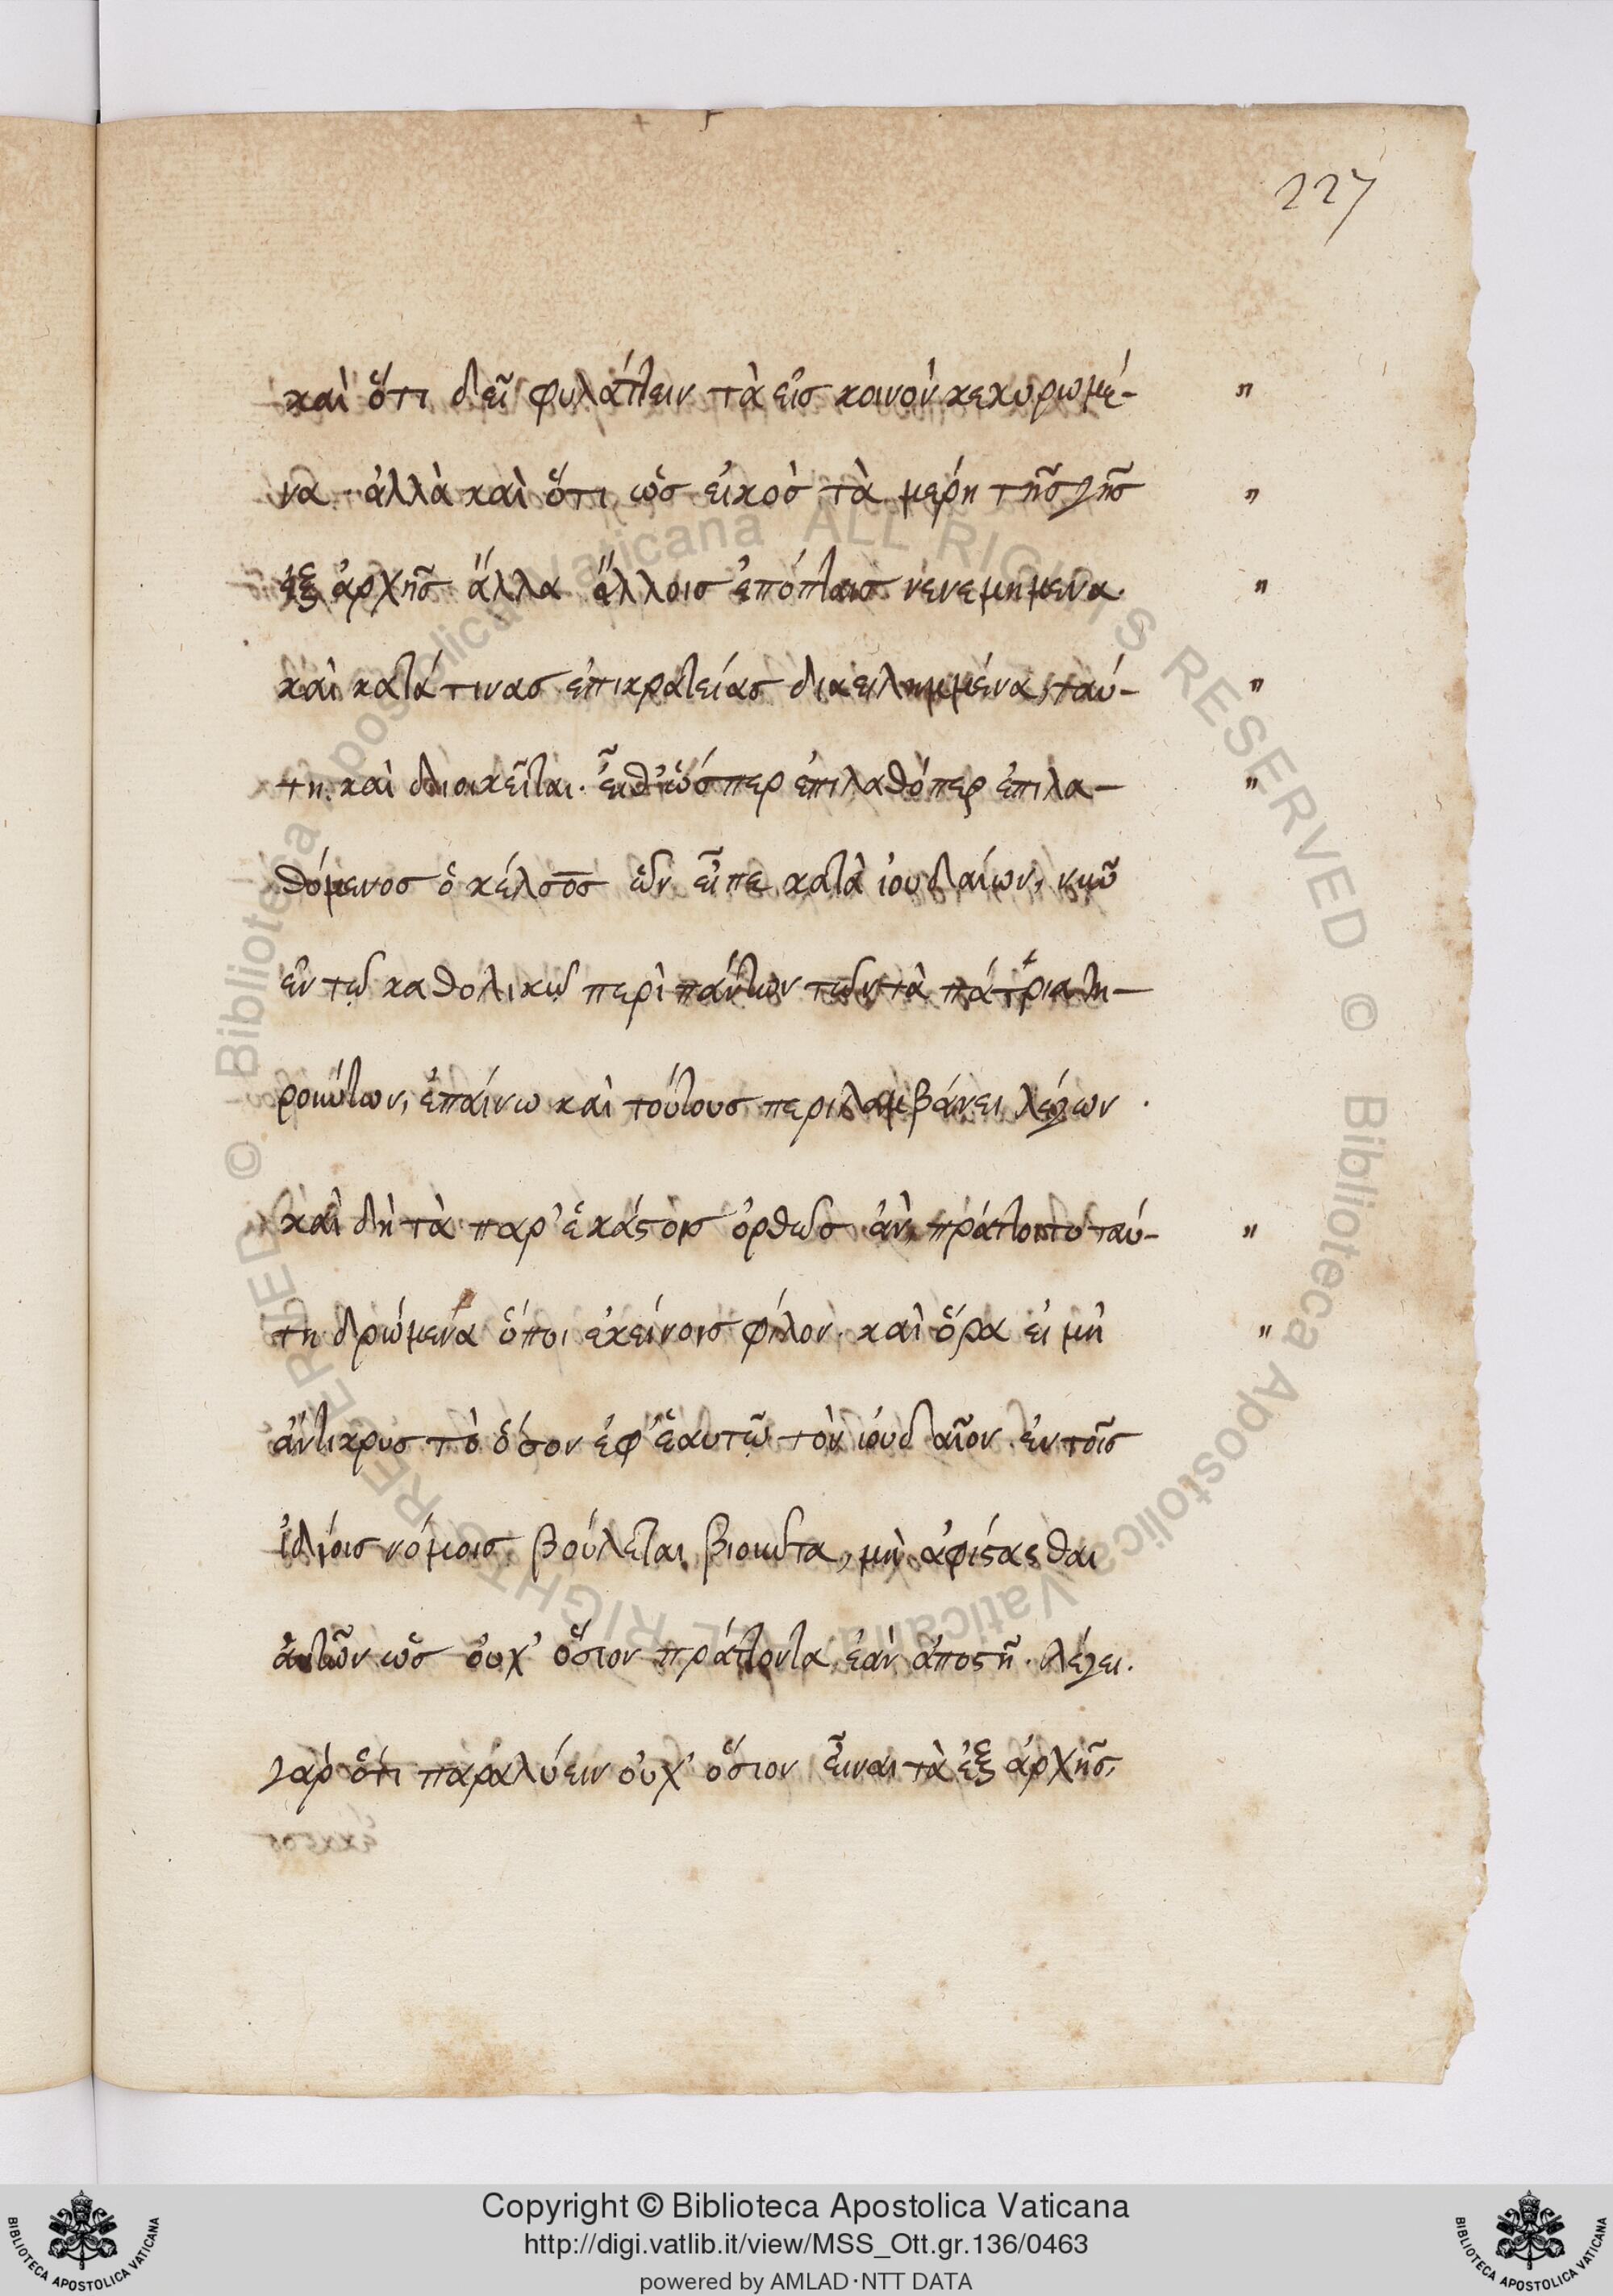 227
καὶ ὅτι δεῖ φυλάττειν τὰ εἰς κοινὸν κεκυρωμέ- "
να· ἀλλὰ καὶ ὅτι ὡς εἰκὸς τὰ μέρη τῆς γῆς "
ἐξ ἀρχῆς ἄλλα ἄλλοις ἐπόπταις νενεμημένα· "
καὶ κατά τινας ἐπικρατείας διειλημμένα, ταύ- "
τη καὶ διοικεῖται. εἶθ' ὥσπερ ἐπιλαθόπερ ἐπιλα- "
θόμενος ὁ κέλσος ὧν εἶπε κατὰ ἰουδαίων, νῦν
ἐν τῷ καθολικῷ περὶ πάντων τῶν τὰ πάτρια τη-
ρούντων, ἐπαίνω καὶ τούτους περιλαμβάνει λέγων·
καὶ δὴ τὰ παρ' ἑκάστοις ὀρθῶς ἂν πράττοιτο ταύ- "
τη δρώμενα ὅποι ἐκείνοις φίλον. καὶ ὅρα εἰ μὴ "
ἄντικρυς τὸ ὅσον ἐφ' ἑαυτῷ τὸν ἰουδαῖον ἐν τοῖς
ἰδίοις νόμοις βούλεται βιοῦντα, μὴ ἀφίστασθαι
αὐτῶν ὡς οὐχ' ὅσιον πράττοντα ἐὰν ἀποστῇ. λέγει·
γὰρ ὅτι παραλύειν οὐχ' ὅσιον εἶναι τὰ ἐξ ἀρχῆς,
Copyright © Biblioteca Apostolica Vaticana
http://digi.vatlib.it/view/MSS_Ott.gr.136/0463
powered by AMLAD·NTT DATA
BIBLIOTECA APOSTOLICA VATICANA
BIBLIOTECA APOSTOLICA VATICANA
© Biblioteca Apostolica Vaticana ALL RIGHTS RESERVED © Biblioteca Apostolica Vaticana ALL RIGHTS RESERVED